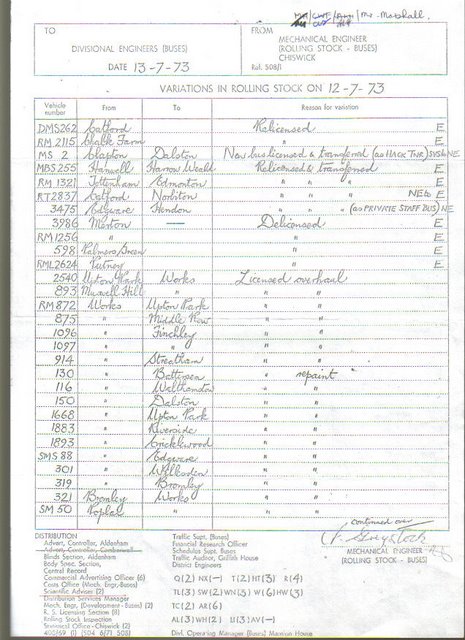 Mr. Marshall.
TO
DIVISIONAL ENGINEERS (BUSES)
DATE 13-7-73
FROM
MECHANICAL ENGINEER
(ROLLING STOCK - BUSES)
CHISWICK
Ref. 508/1
VARIATIONS IN ROLLING STOCK ON 12-7-73
Vehicle number From To Reason for variation
DMS262 Catford Relicensed E
RM 2115 Chalk Farm " E
MS 2 Clapton Dalston Now bus licensed & transferred (as HACK TNR) NE
MBS 255 Hanwell Harrow Weald Relicensed & transferred E
RM 1321 Tottenham Edmonton " " " E
RT2837 Catford Norbiton " " " NE to E
3475 Edgware Hendon " (as PRIVATE STAFF BUS) NE
3986 Merton — Delicensed E
RM1256 " " E
598 Palmers Green " E
RML2624 Putney " E
2540 Upton Park Works Licensed overhaul
893 Muswell Hill " " "
RM872 Works Upton Park " "
875 " Middle Row " "
1096 " Finchley " "
1097 " " " "
914 " Streatham " "
130 " Battersea " repaint
116 " Walthamstow " "
150 " Dalston " "
1668 " Upton Park " "
1883 " Riverside " "
1893 " Cricklewood " "
SMS 88 " Edgware " "
301 " Willesden " "
319 " Bromley " "
321 Bromley Works " "
SM 50 Poplar " " "
continued over
MECHANICAL ENGINEER
(ROLLING STOCK - BUSES)
DISTRIBUTION
Advert. Controller, Aldenham
Advert. Controller, Camberwell
Blinds Section, Aldenham
Body Spec. Section,
Central Record
Commercial Advertising Officer (6)
Costs Office (Mech. Engr.-Buses)
Scientific Adviser (2)
Distribution Services Manager
Mech. Engr, (Development - Buses) (2)
R. S. Licensing Section (8)
Rolling Stock Inspection
Statistical Office - Chiswick (2)
Traffic Supt. (Buses)
Financial Research Officer
Schedules Supt. Buses
Traffic Auditor, Griffith House
District Engineers
Q(2) NX(-) T(2) HT(3) R(4)
TL(3) SW(2) WN(3) W(6) HW(3)
TC(2) AR(6)
AL(3) WH(2) U(3) AV(-)
Divl. Operating Manager (Buses) Mansion House